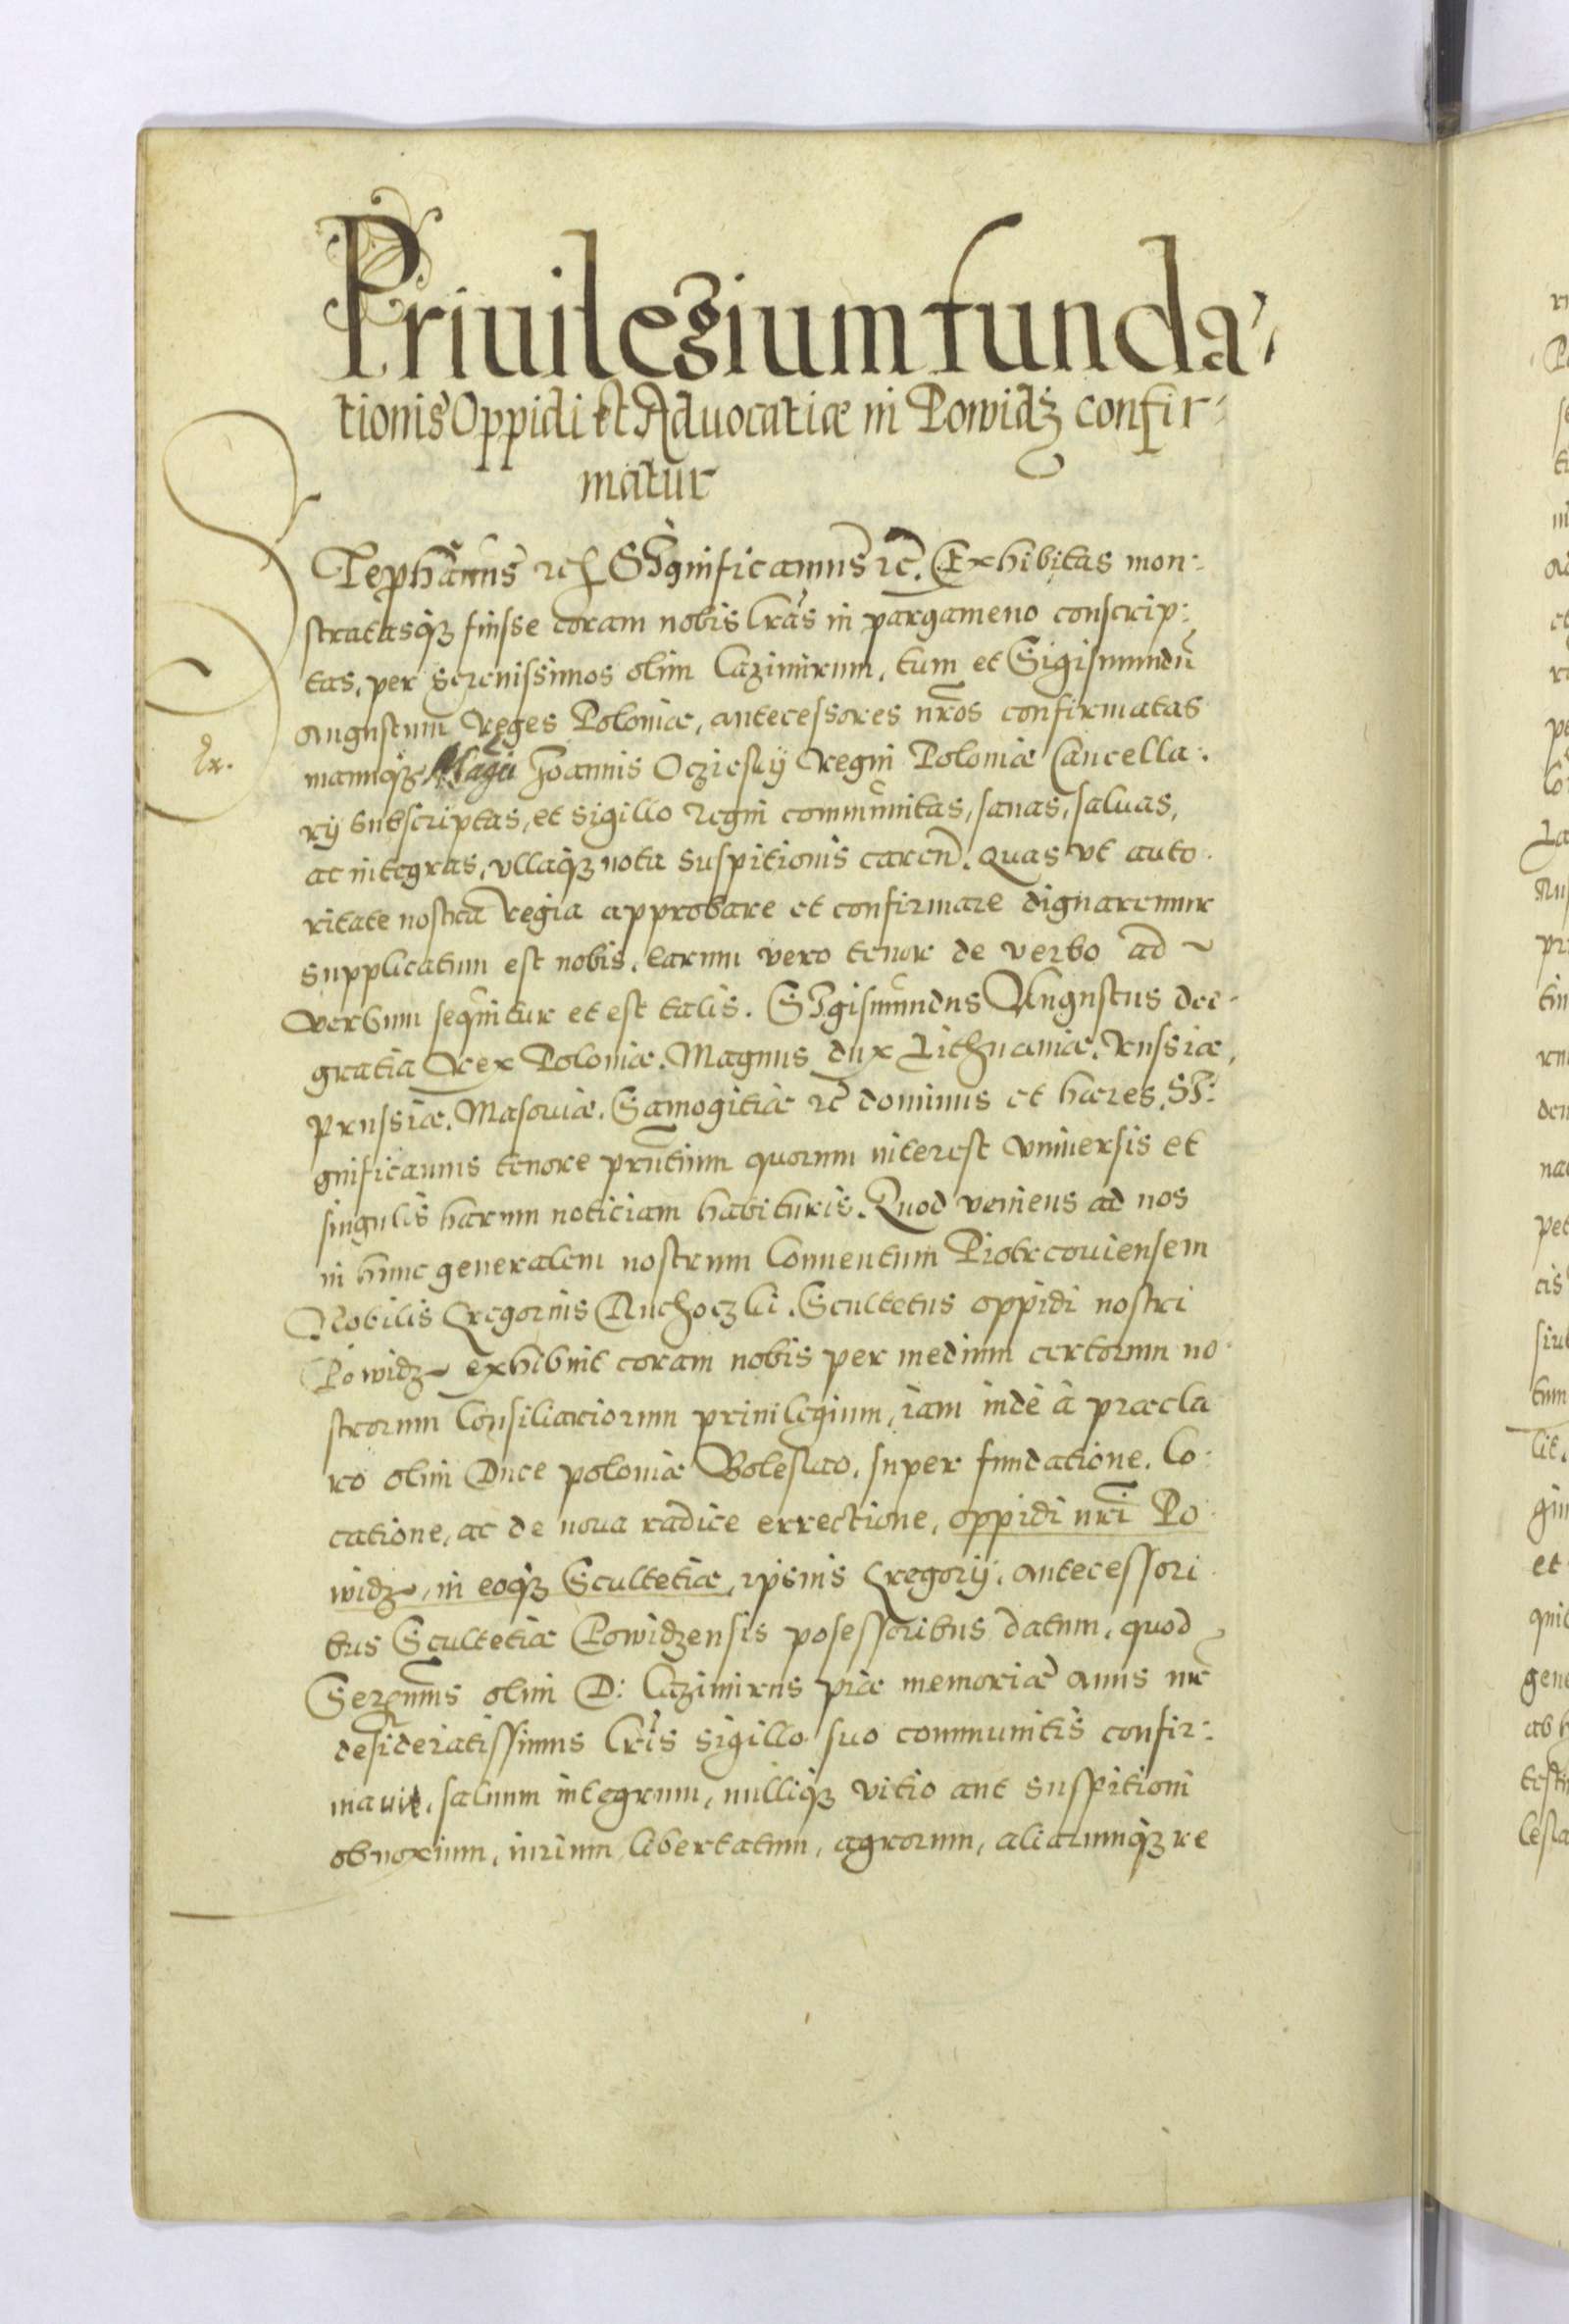 Priuilegium funda-
tionis Oppidi et Aduocatiæ in Powidz confir-
matur
Stephanus etc. Significamus etc. Exhibitas mon-
stratasq3 fuisse coram nobis lras in pargameno conscrip-
tas, per serenissimos olim Cazimirum, tum et Sigismundũ
Augustum Reges Poloniæ, antecessores nros confirmatas
manuq3 Magci Joannis Oczieskij Regni Poloniæ Cancella-
rij subscriptas, et sigillo Regni communitas, sanas, saluas,
ac integras, vllaq3 nota suspitionis caren. Quas vt auto-
ritate nostra Regia approbare et confirmare dignaremur
supplicatum est nobis. earum vero tenor de verbo ad
verbum sequitur et est talis. Sigismundus Augustus dei
gratia Rex Poloniæ. Magnus dux Lithuaniæ. Russiæ,
Prussiæ. Masouiæ. Samogitiæ etc dominus et hæres. Si-
gnificamus tenore prntium quorum interest vniuersis et
singulis harum noticiam habituris. Quod veniens ad nos
in hunc generalem nostrum Conuentum Piotrcouiensem
Nobilis Gregorius Ruchoczki. Scultetus oppidi nostri
Powidz exhibuit coram nobis per medium certorum no-
strorum Consiliariorum priuilegium, iam inde à præcla
ro olim Duce poloniæ Boleslao, super fundatione. Lo-
catione, ac de noua radice errectione, oppidi nri Po-
widz, in eoq3 Scultetiæ, ipsius Gregorij, antecessori-
bus Scultetiæ Powidzensis posessoribus datum, quod
Serenmus olim D: Cazimirus piæ memoriæ Auus nr
desideratissimus lris sigillo suo communitis confir-
mauit, saluum integrum, nulliq3 vitio aut suspitioni
obnoxium, iurium libertatum, agrorum, aliarumq3 re